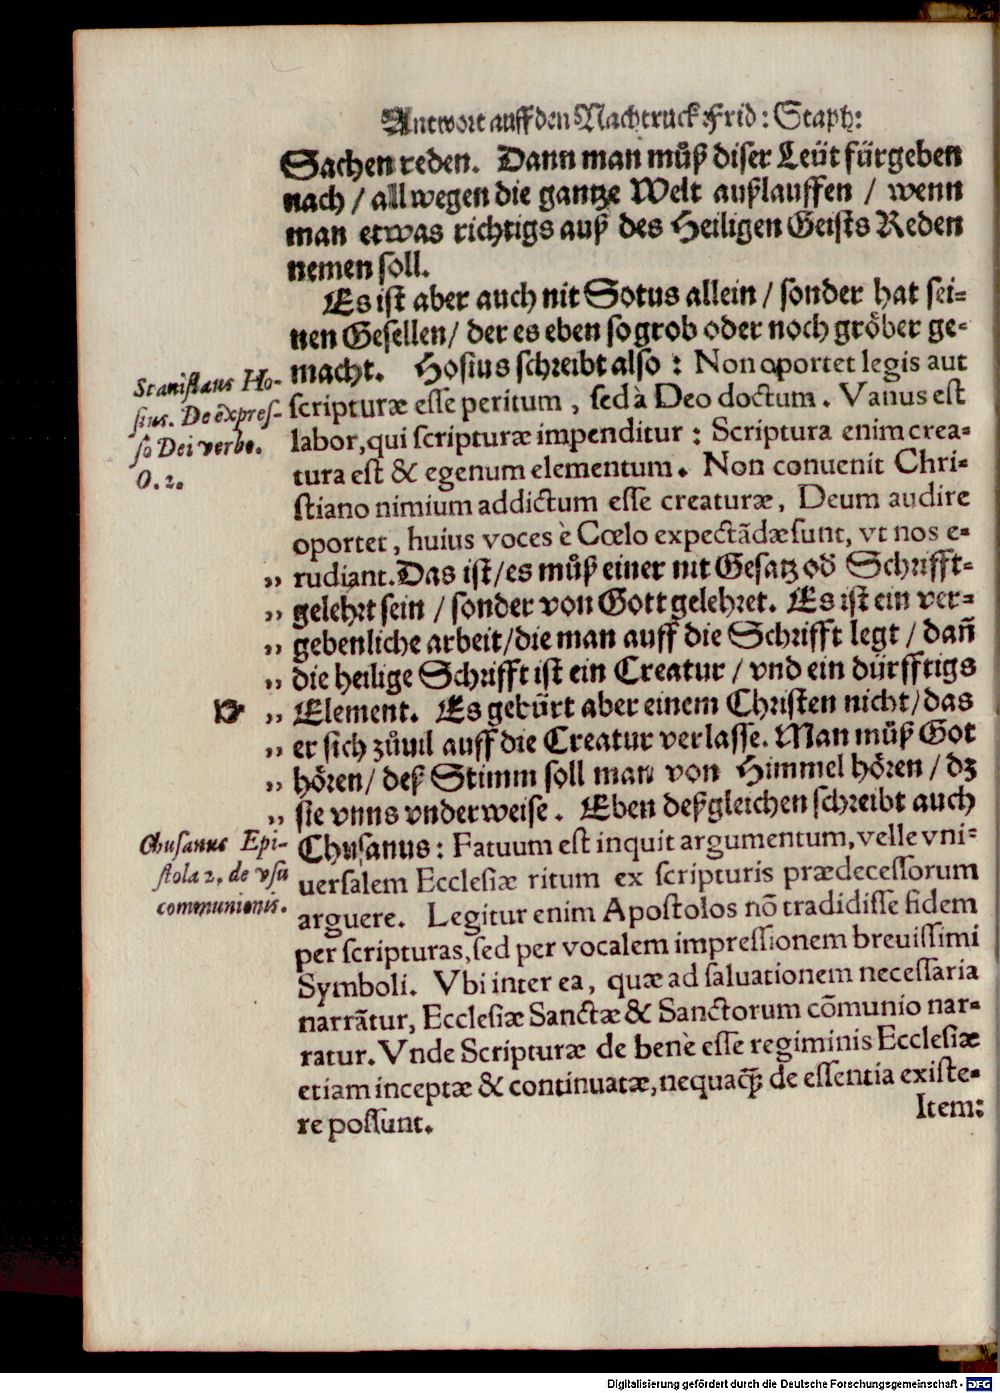 Antwort auff den Nachtruck Frid: Staph:
Sachen reden. Dann man můß diser Leüt fürgeben
nach / allwegen die gantze Welt außlauffen / wenn
man etwas richtigs auß des Heiligen Geists Reden
nemen soll.
Es ist aber auch nit Sotus allein / sonder hat sei=
nen Gesellen / der es eben so grob oder noch gröber ge=
macht. Hosius schreibt also : Non oportet legis aut
Stanislaus Ho-
sius. De expres-
so Dei verbo.
O. 2.
scripturæ esse peritum , sed à Deo doctum. Vanus est
labor, qui scripturæ impenditur : Scriptura enim crea=
tura est & egenum elementum. Non conuenit Chri=
stiano nimium addictum esse creaturæ, Deum audire
oportet, huius voces è Cœlo expectãdæ sunt, vt nos e=
„ rudiant. Das ist / es můß einer nit Gesatz od Schrifft=
„ gelehrt sein / sonder von Gott gelehret. Es ist ein ver=
„ gebenliche arbeit / die man auff die Schrifft legt / dañ
„ die heilige Schrifft ist ein Creatur / vnd ein dürfftigs
☞ „ Element. Es gebürt aber einem Christen nicht / das
„ er sich zůuil auff die Creatur verlasse. Man můß Got
„ hören / deß Stimm soll man von Himmel hören / dz
„ sie vnns vnderweise. Eben deßgleichen schreibt auch
Chusanus Epi-
stola 2. de vsu
communionis.
Chusanus : Fatuum est inquit argumentum, velle vni=
uersalem Ecclesiæ ritum ex scripturis prædecessorum
arguere. Legitur enim Apostolos nõ tradidisse fidem
per scripturas, sed per vocalem impressionem breuissimi
Symboli. Vbi inter ea, quæ ad saluationem necessaria
narrãtur, Ecclesiæ Sanctæ & Sanctorum cõmunio nar=
ratur. Vnde Scripturæ de benè esse regiminis Ecclesiæ
etiam inceptæ & continuatæ, nequaq̃; de essentia existe=
re possunt.
Item:
Digitalisierung gefördert durch die Deutsche Forschungsgemeinschaft - DFG